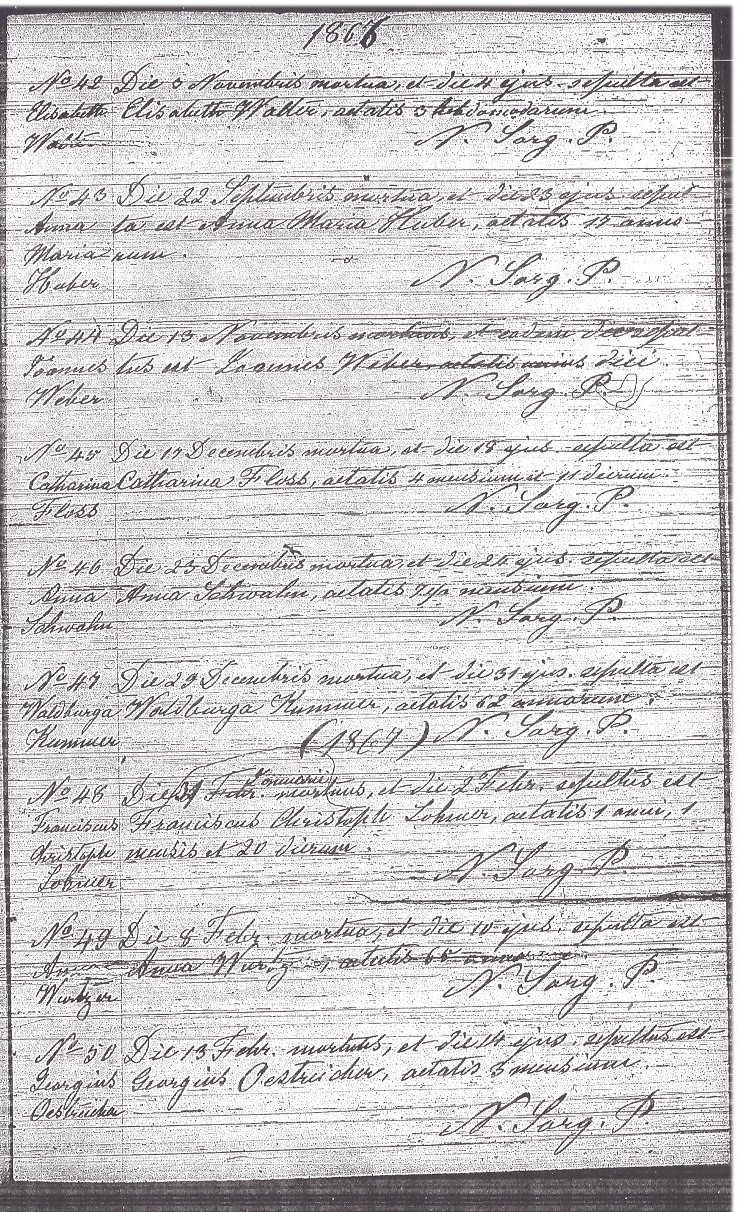 1866
No 42 Die 3 Novembris mortua, et die 4 ejus. sepulta est
Elisabetha Elisabeth Walter, aetatis 3 hebdomodarum.
Walter N. Sorg. P.
No 43 Die 22 Septembris mortua, et die 23 ejus sepul
Anna ta est Anna Maria Huber, aetatis 17 anno
Maria rum.
Huber N. Sorg. P.
No 44 Die 13 Novembris mortuus, et eodem die
Joannes tus est Joannes Weber, aetatis unius diei.
Weber N. Sorg. P.
No 45 Die 17 Decembris mortua, et die 18 ejus. sepulta est
Catharina Catharina Floss, aetatis 4 mensium et 11 dierum.
Floss N. Sorg. P.
No 46 Die 23 Decembris mortua, et die 26 ejus. sepulta est
Anna Anna Schwahn, aetatis 7 mensium.
Schwahn N. Sorg. P.
No 47 Die 29 Decembris mortua, et die 31 ejus. sepulta est
Waldburga Waldburga Kummer, aetatis 62 annorum.
Kummer (1867) N. Sorg. P.
No 48 Die 31 Febr. Januarii mortuus, et die 2 Febr. sepultus est
Franciscus Franciscus Christoph Lohmer, aetatis 1 anni, 1
Christoph mensis et 20 dierum.
Lohmer N. Sorg. P.
No 49 Die 8 Febr. mortua, et die 10 ejus. sepulta est
Anna Anna aetatis 65
Wurtzer N. Sorg. P.
No 50 Die 13 Febr. mortuus, et die 14 ejus. sepultus est
Georgius Georgius Oestreicher, aetatis 3 mensium.
Oestreicher
N. Sorg. P.